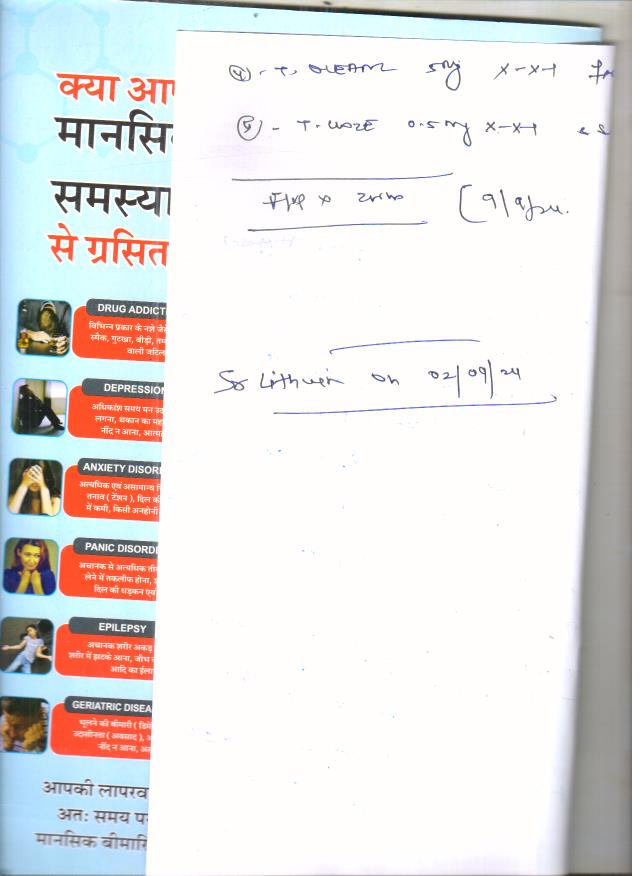 ④ - T. OLEANZ 5mg X-X-1
⑤ - T. LOZE 0.5mg X-X-1
[9/9/24.
Sr Lithium on 02/09/24
क्या आप
मानसि
समस्या
से ग्रसित
DRUG ADDICT
विभिन्न प्रकार के नशे जैसे
स्मैक, गुटखा, बीड़ी, तम्
वाली जटिल
DEPRESSION
अधिकांश समय मन उद
लगना, थकान का मह
नींद न आना, आत्म
ANXIETY DISOR
अत्यधिक एवं असामान्य
तनाव ( टेंशन ), दिल की
में कमी, किसी अनहोनी
PANIC DISORDE
अचानक से अत्यधिक ती
लेने में तकलीफ होना,
दिल की धड़कन एव
EPILEPSY
अचानक शरीर अकड़
शरीर में झटके आना, जीभ
आदि का ईला
GERIATRIC DISEA
भूलने की बीमारी ( डिमें
उदासीनता ( अवसाद ),
नींद न आना,
आपकी लापरवा
अतः समय पर
मानसिक बीमारि